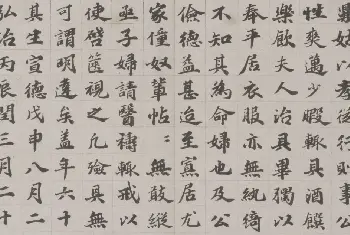 事公
性爽邁少暇輒具酒饌
樂飲夫人治具畢獨以
奉平居衣服亦無紈綺
不知其為命婦也及公
儉德益甚迨至寡居尤
家僮奴輩帖〻無敢縱
亟子婦請醫禱輒戒以
使啓篋視之凡殮具無
可謂明逺矣蓋年六十
其生宣德戊申八月二
弘治丙辰閏三月二十